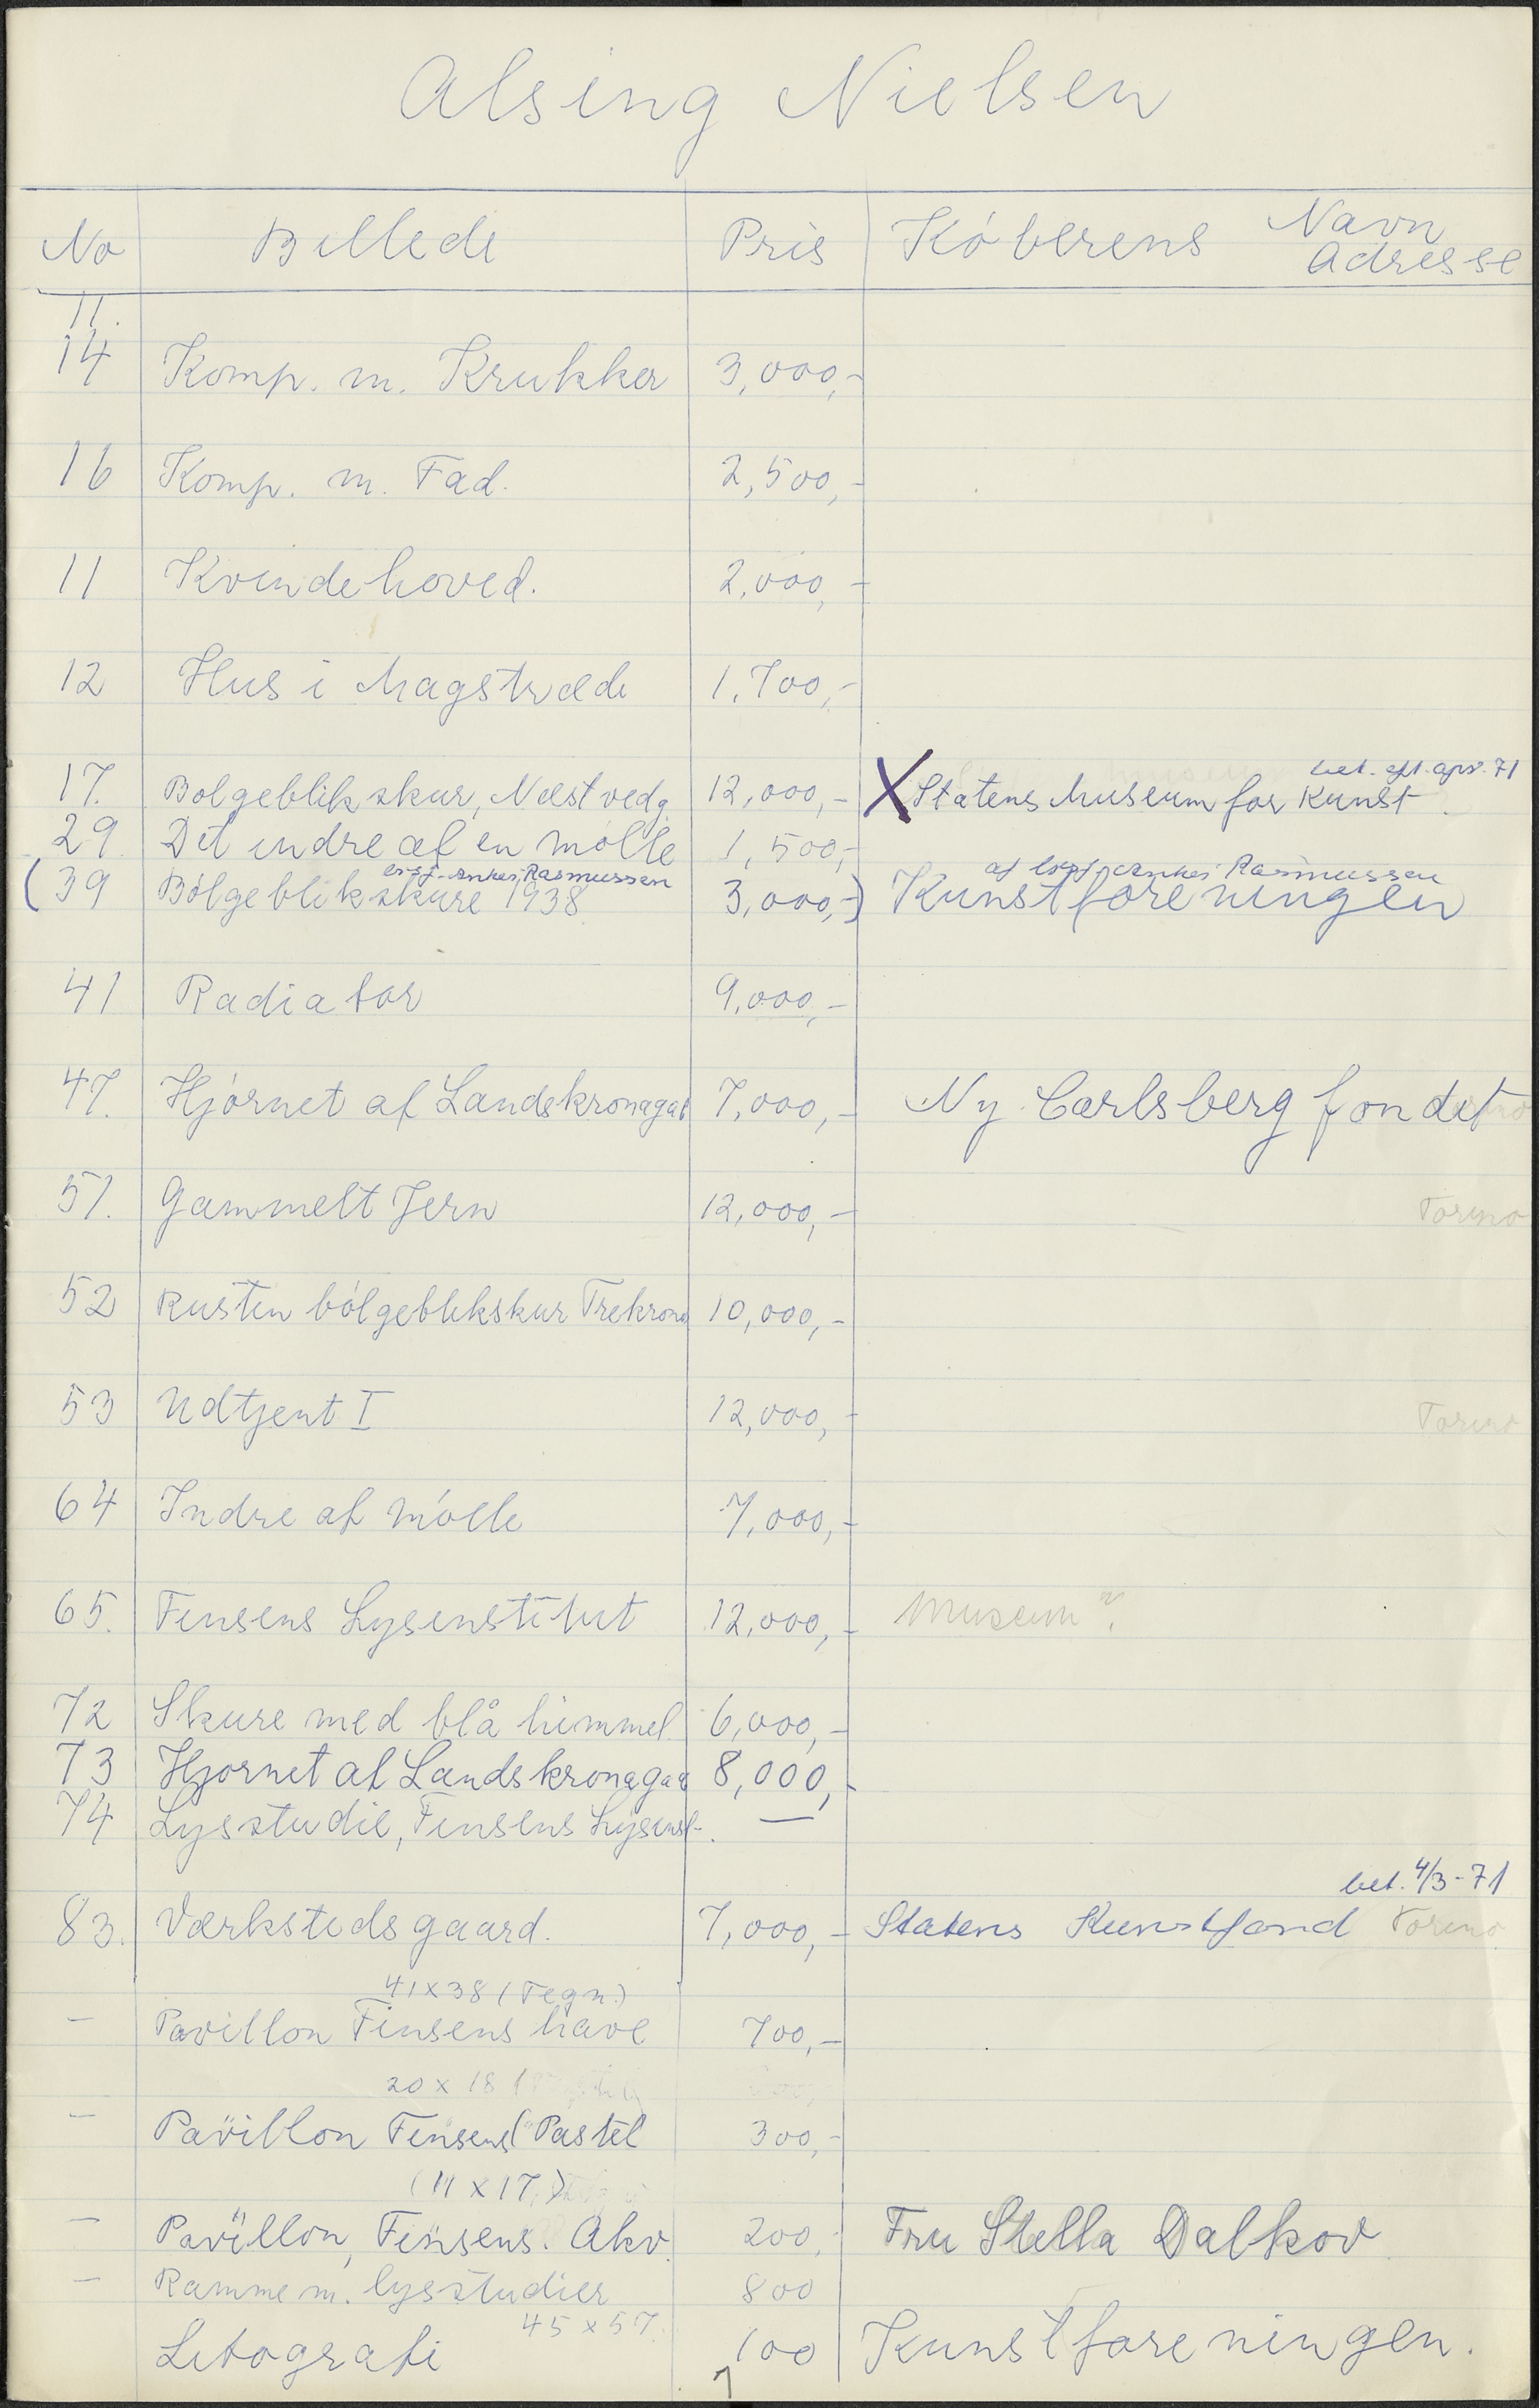 Alsing Nielsen
No Billede Pris Köberens Navn
Adresse
11.
14 Komp. m. Krukker 3,000,-
16 Komp. m. Fad. 2,500,-
11 Kvindehoved. 2,000,-
12 Hus i Magstræde 1.700,-
bet. apr. 71
17. Bolgeblikskur, Næstvedg. 12,000,- X Statens Museum for Kunst.
29 Det indre af en mölle 1,500,-
Anker Rasmussen af Anker Rasmussen
(39 Bölgeblikskure 1938 3,000,-) Kunstforeningen
41 Radiator 9,000,-
47. Hjörnet af Landskronagad 7,000,- Ny Carlsberg fondet
51. Gammelt Jern 12,000,- Torino
52 Rusten bölgeblikskur Trekrone 10,000,-
53 Udtjent I 12,000,- Torino
64 Indre af Mölle 7,000,-
65. Finsens Lysinstitut 12,000,- Museum?
72 Skure med blå himmel 6,000,-
73 Hjornet af Landskronagad 8,000,-
74 Lysstudie, Finsens Lysinst. —
bet. 4/3-71
83. Værkstedsgaard. 7,000,- Statens Kunstfond Torino
41x38 (Tegn.)
- Pavillon Finsens have 700,-
20 x 18
- Pavillon Finsens (Pastel 300,-
(11 x 17)
- Pavillon, Finsens. Akv. 200,- Fru Stella Dalkov
- Ramme m. lysstudier 800
45 x 57.
Litografi 100 Kunstforeningen.